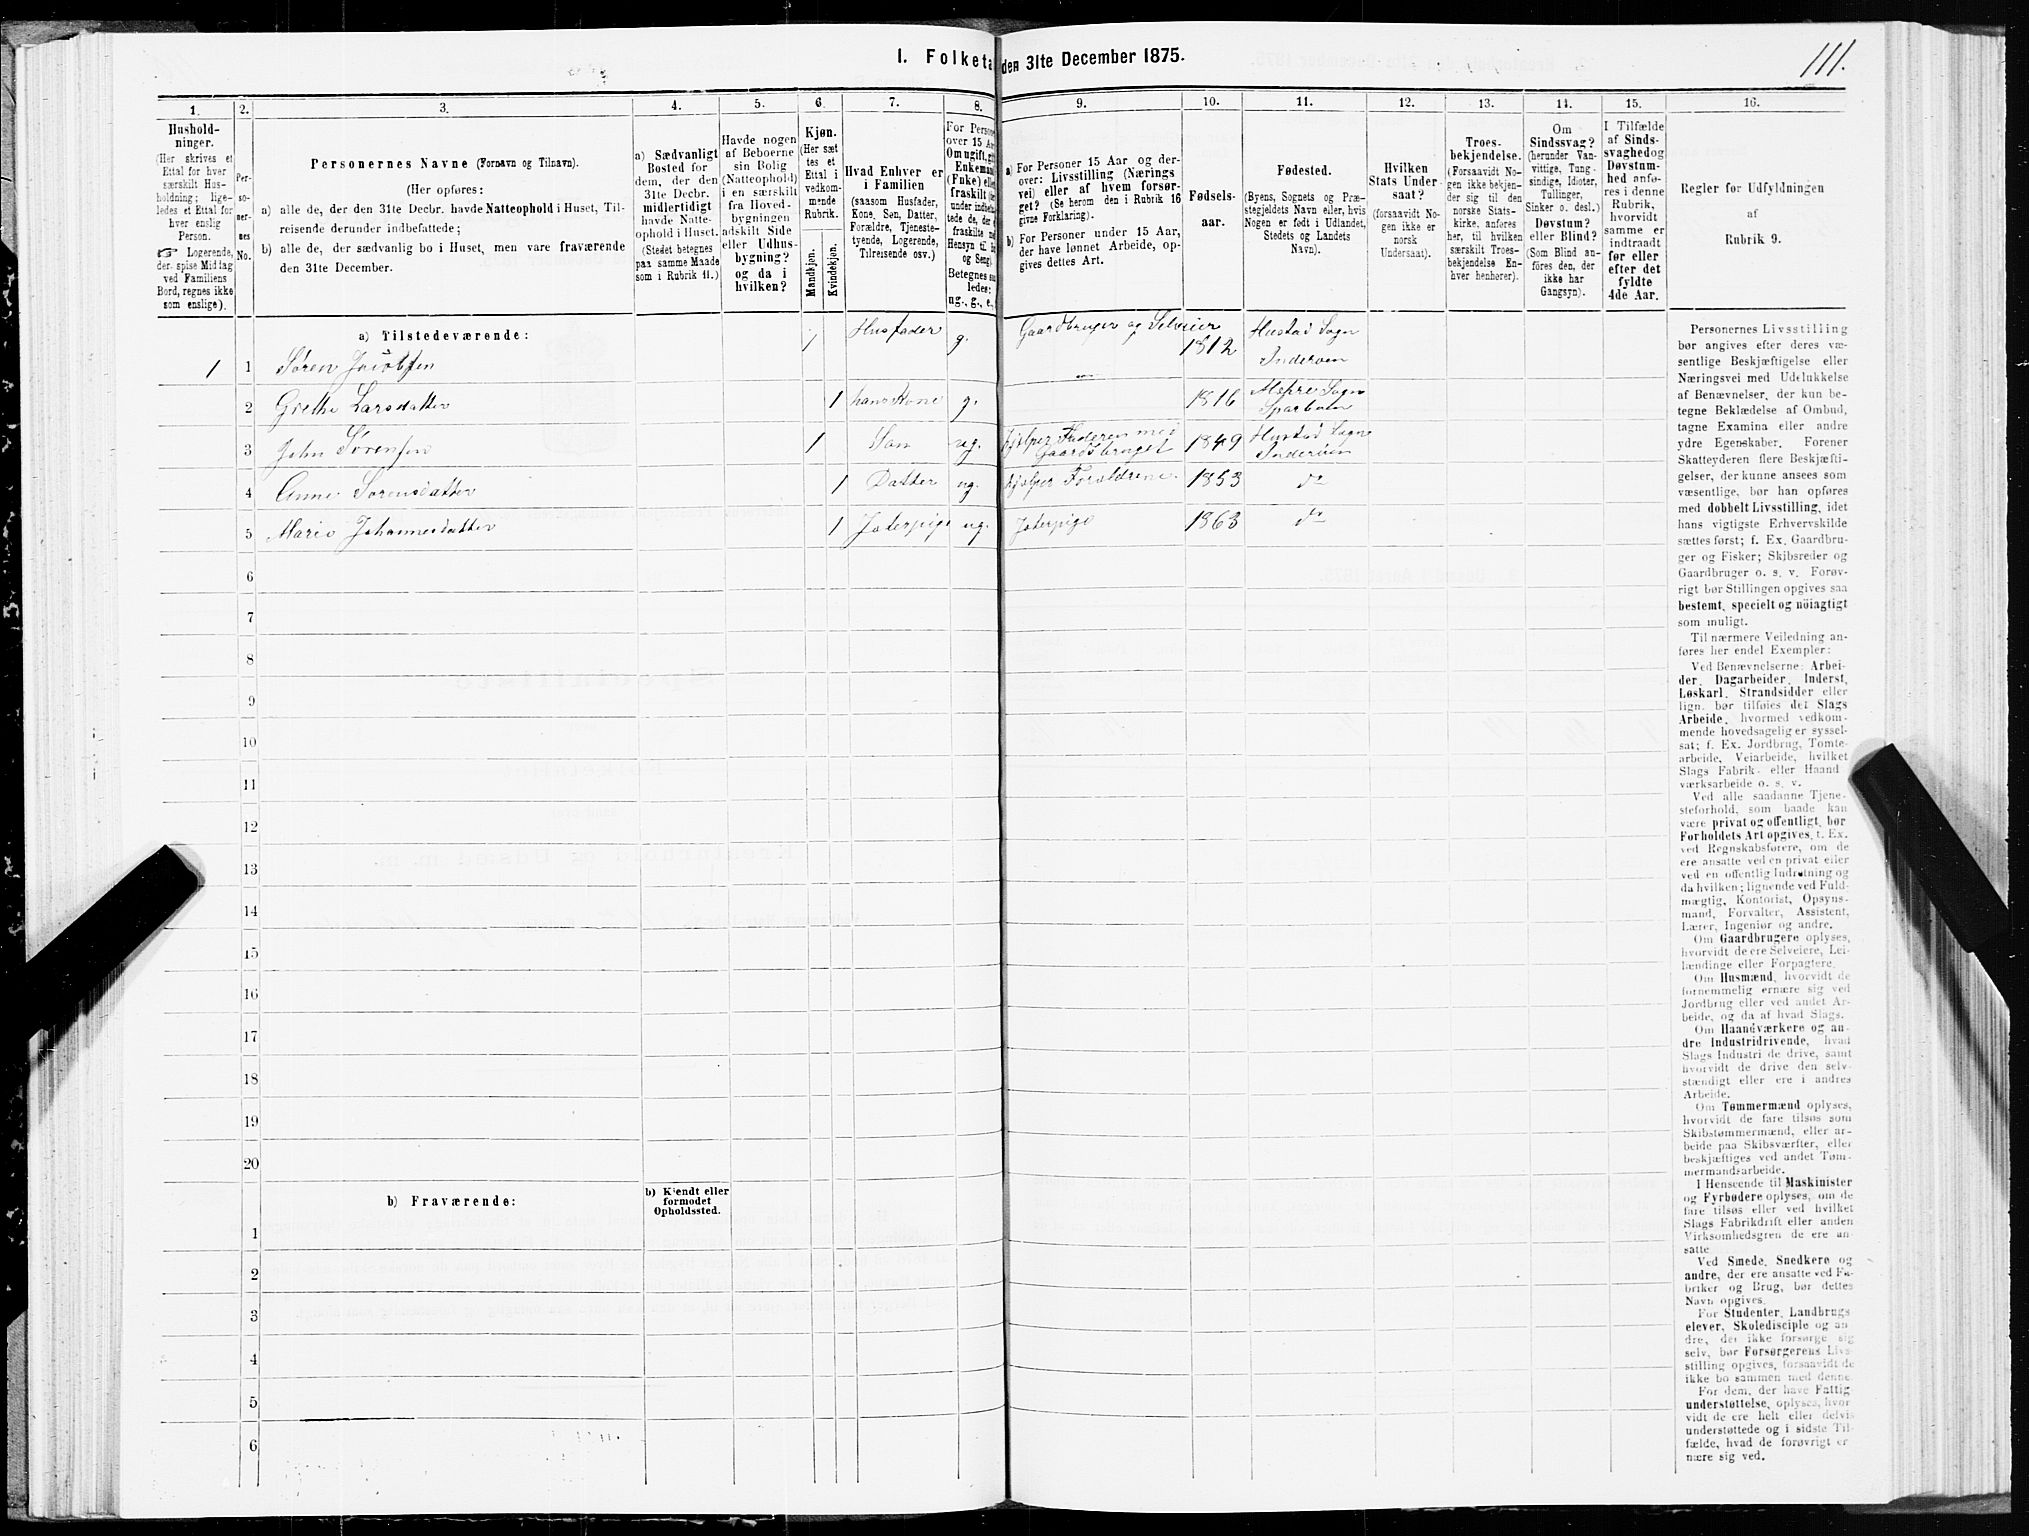 I. Folketa den 31te December 1875.
111.
1.
2.
3.
4.
5.
6.
7.
8.
9.
10.
11.
12.
13.
14.
15.
16.
Hushold-
ninger.
(Her skrives et
Ettal for hver
særskilt Hus-
holdning; lige-
ledes et Ettal for
hver enslig
Person.
☞ Logerende,
der spise Middag
ved Familiens
Bord, regnes ikke
som enslige).
Per-
so-
ner-
nes
No.
Personernes Navne (Fornavn og Tilnavn).
(Her opføres:
a) alle de, der den 31te Decbr. havde Natteophold i Huset, Til-
reisende derunder indbefattede;
b) alle de, der sædvanlig bo i Huset, men vare fraværende
den 31te December.
a) Sædvanligt
Bosted for
dem, der den
31te Decbr.
midlertidigt
havde Natte-
ophold i Huset.
(Stedet betegnes
paa samme Maade
som i Rubrik 11.)
Havde nogen
af Beboerne
sin Bolig
(Natteophold)
i en særskilt
fra Hoved-
bygningen
adskilt Side
eller Udhus-
bygning?
og da i
hvilken?
Kjøn.
(Her sæt
tes et
Ettal i
vedkom-
mende
Rubrik.
Mandkjøn.
Kvindekjøn.
Hvad Enhver er
i Familien
(saasom Husfader,
Kone, Søn, Datter,
Forældre, Tjeneste-
tyende, Logerende,
Tilreisende osv.)
For Persone
over 15 Aa
Om ugift, gif
Enkeman
(Enke) elle
fraskilt (se
under indbefat
tede de, de
fraskilte m
Hensyn til bo
og Seng).
Betegnes saa
ledes:
ug., g., e.,
a) For Personer 15 Aar og der-
over: Livsstilling (Nærings
vei) eller af hvem forsør-
get? (Se herom den i Rubrik 16
givne Forklaring).
b) For Personer under 15 Aar,
der have lønnet Arbeide, op-
gives dettes Art.
Fødsels-
aar.
Fødested.
(Byens, Sognets og Præ-
stegjeldets Navn eller, hvis
Nogen er født i Udlandet,
Stedets og Landets
Navn).
Hvilken
Stats Under
saat?
(forsaavidt No-
gen ikke er
norsk
Undersaat).
Troes-
bekjendelse.
(Forsaavidt No-
gen ikke bekjen-
der sig til den
norske Stats-
kirke, anføres
her, til hvilken
særskilt Troes-
bekjendelse En-
hver henhører).
Om
Sindssvag?
(herunder Van-
vittige, Tung-
sindige, Idioter,
Tullinger,
Sinker o. desl.)
Døvstum?
eller Blind?
(Som Blind an-
føres den, der
ikke har
Gangsyn).
I Tilfælde
af Sinds-
svaghed og
Døvstum-
hed anfø-
res i denne
Rubrik,
hvorvidt
samme er
indtraadt
før eller
efter det
fyldte
4de Aar.
Regler før Udfyldningen
af
Rubrik 9.
a) Tilstedeværende:
1 1 Søren Jacobsen 1 Husfader g. Gaardbruger og Selveier 1812 Hustad Sogn
Inderøen
2 Grethe Larsdatter 1 hans Kone g. 1816 Sogn
Sparbuen
3 John Sørensen 1 Søn ug. hjelper Faderen med
Gaardsbruget 1849 Hustad Sogn
Inderøen
4 Anne Sørensdatter 1 Datter ug. hjelper Forældrene 1853 do
5 Marie Johannesdatter 1 Jæterpige ug. Jæterpige 1863 do
6
7
8
9
10
11
12
13
14
15
16
17
18
19
20
b) Fraværende:
b) Kjendt eller
formodet
Opholdssted.
1
2
3
4
5
6
Personernes Livsstilling
bør angives efter deres væ-
sentlige Beskjæftigelse eller
Næringsvei med Udelukkelse
af Benævnelser, der kun be-
tegne Beklædelse af Ombud,
tagne Examina eller andre
ydre Egenskaber. Forener
Skatteyderen flere Beskjæfti-
gelser, der kunne ansees som
væsentlige, bør han opføres
med dobbelt Livsstilling, idet
hans vigtigste Erhvervskilde
sættes først; f. Ex. Gaardbru-
ger og Fisker; Skibsreder og
Gaardbruger o. s. v. Forøv-
rigt bør Stillingen opgives saa
bestemt, specielt og nöiagtigt
som muligt.
Til nærmere Veiledning an-
føres her endel Exempler:
Ved Benævnelserne: Arbei-
der, Dagarbeider, Inderst,
Løskarl, Strandsidder eller
lign. bør tilføies det Slags
Arbeide, hvormed vedkom-
mende hovedsagelig er syssel-
sat; f. Ex. Jordbrug, Tomte-
arbeide, Veiarbeide, hvilket
Slags Fabrik- eller Haand
værksarbeide o. s. v.
Ved alle saadanne Tjene-
steforhold, som baade kan
være privat og offentligt, bør
Forholdets Art opgives, t. Ex.
ved Regnskabsførere, om de
ere ansatte ved en privat eller
ved en offentlig Indretning og
da hvilken; lignende ved Fuld-
mægtig, Kontorist, Opsyns-
mand, Forvalter, Assistent,
Lærer, Ingeniør og andre.
Om Gaardbrugere oplyses,
hvorvidt de ere Selveiere, Lei-
lændinge eller Forpagtere.
Om Husmænd, hvorvidt de
fornemmelig ernære sig ved
Jordbrug eller ved andet Ar-
beide, og da af hvad Slags.
Om Haandværkere og an-
dre Industridrivende, hvad
Slags Industri de drive, samt
hvorvidt de drive den selv-
stændigt eller ere i andres
Arbeide.
Om Tømmermænd oplyses,
hvorvidt de fare tilsøs som
Skibstømmermænd, eller ar-
beide paa Skibsværfter, eller
beskjæftiges ved andet Tøm-
mermandsarbeide.
I Henseende til Maskinister
og Fyrbødere oplyses, om de
fare tilsøs eller ved hvilket
Slags Fabrikdrift eller anden
Virksomhedsgren de ere an-
satte
Ved Smede, Snedkere og
andre, der ere ansatte ved Fa-
briker og Brug, bør dettes
Navn opgives.
For Studenter, Landbrugs
elever, Skoledisciple og an
dre, der ikke forsørge sig
selv, bør Forsørgerens Livs-
stilling opgives, forsaavidt de
ikke bo sammen med denne.
For dem, der have Fattig
understøttelse, oplyses, hvor
vidt de ere helt eller delvis
understøttede og i sidste Til-
fælde, hvad de forøvrigt er
nære sig ved.